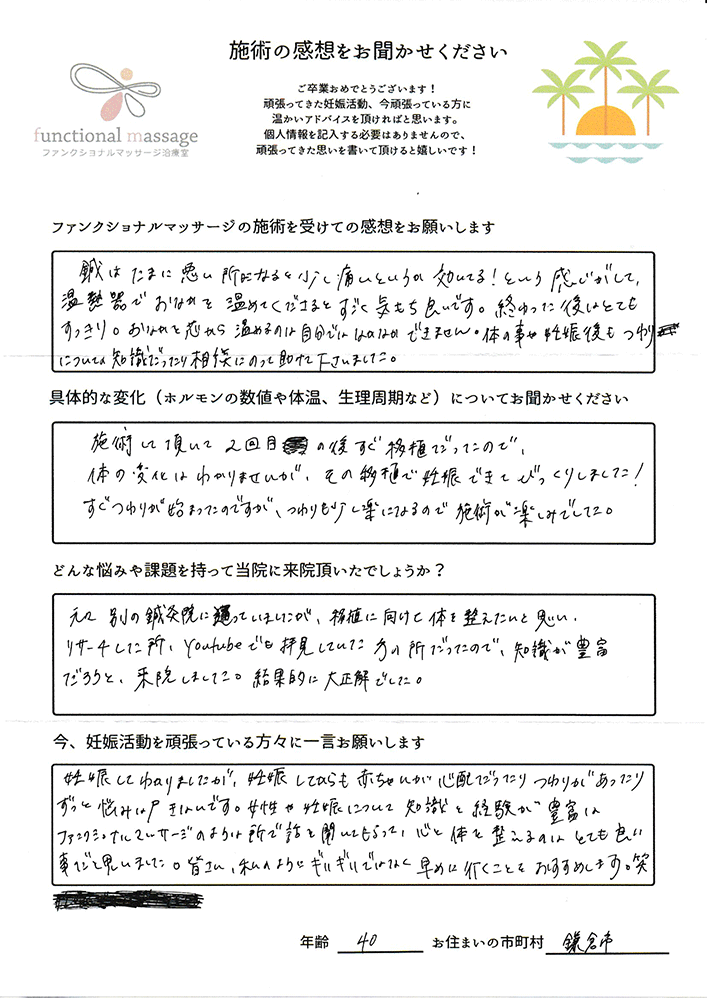 施術の感想をお聞かせください
functional massage
ファンクショナルマッサージ治療室
ご卒業おめでとうございます！
頑張ってきた妊娠活動、今頑張っている方に
温かいアドバイスを頂ければと思います。
個人情報を記入する必要はありませんので、
頑張ってきた思いを書いて頂けると嬉しいです！
ファンクショナルマッサージの施術を受けての感想をお願いします
鍼はたまに悪い所になると少し痛いというか効いてる！という感じがして、
温熱器でおなかを温めてくださるとすごく気もち良いです。終わった後はとても
すっきり。おなかを芯から温めるのは自分ではなかなかできません。体の事や妊娠後もつわり
については知識だったり相談にのって助けて下さいました。
具体的な変化（ホルモンの数値や体温、生理周期など）についてお聞かせください
施術して頂いて2回目の後すぐ移植だったので、
体の変化はわかりませんが、その移植で妊娠できてびっくりしました！
すぐつわりが始まったのですが、つわりも少し楽になるので施術が楽しみでした。
どんな悩みや課題を持って当院に来院頂いたでしょうか？
元々別の鍼灸院に通っていましたが、移植に向けて体を整えたいと思い、
リサーチした所、Youtubeでも拝見していた方の所だったので、知識が豊富
だろうと、来院しました。結果的に大正解でした。
今、妊娠活動を頑張っている方々に一言お願いします
妊娠してわかりましたが、妊娠してからも赤ちゃんが心配だったりつわりがあったり
ずっと悩みは尽きないです。女性や妊娠について知識と経験が豊富な
ファンクショナルマッサージのような所で話を聞いてもらって、心と体を整えるのはとても良い
事だと思いました。皆さん、私のようにギリギリではなく早めに行くことをおすすめします。笑
年齢 40 お住まいの市町村 鎌倉市